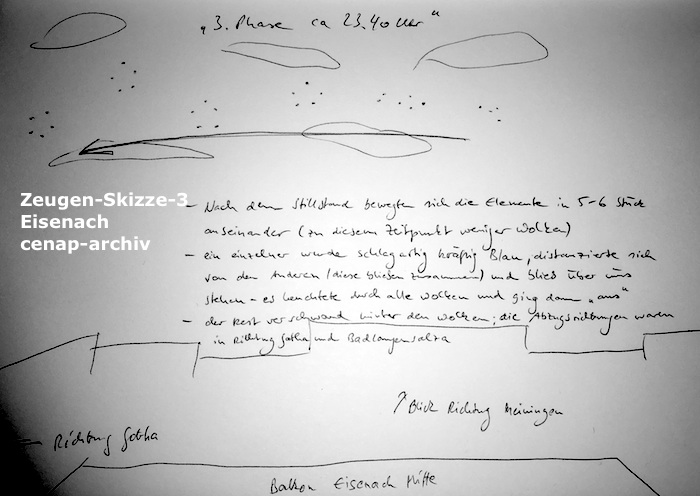 „3. Phase ca 23.40 Uhr“
Zeugen-Skizze-3
Eisenach
cenap-archiv
- Nach dem Stillstand bewegten sich die Elemente in 5-6 Stück
auseinander (zu diesem Zeitpunkt weniger Wolken)
- ein einzelner wurde schlagartig kräftig Blau, distanzierte sich
von den Anderen (diese blieben zusammen) und blieb über uns
stehen - es leuchtete durch alle Wolken und ging dann „aus“
- der Rest verschwand hinter den Wolken; die Abzugsrichtungen waren
in Richtung Gotha und Badlangensalza
↗ Blick Richtung Meiningen
← Richtung Gotha
Balkon Eisenach Mitte